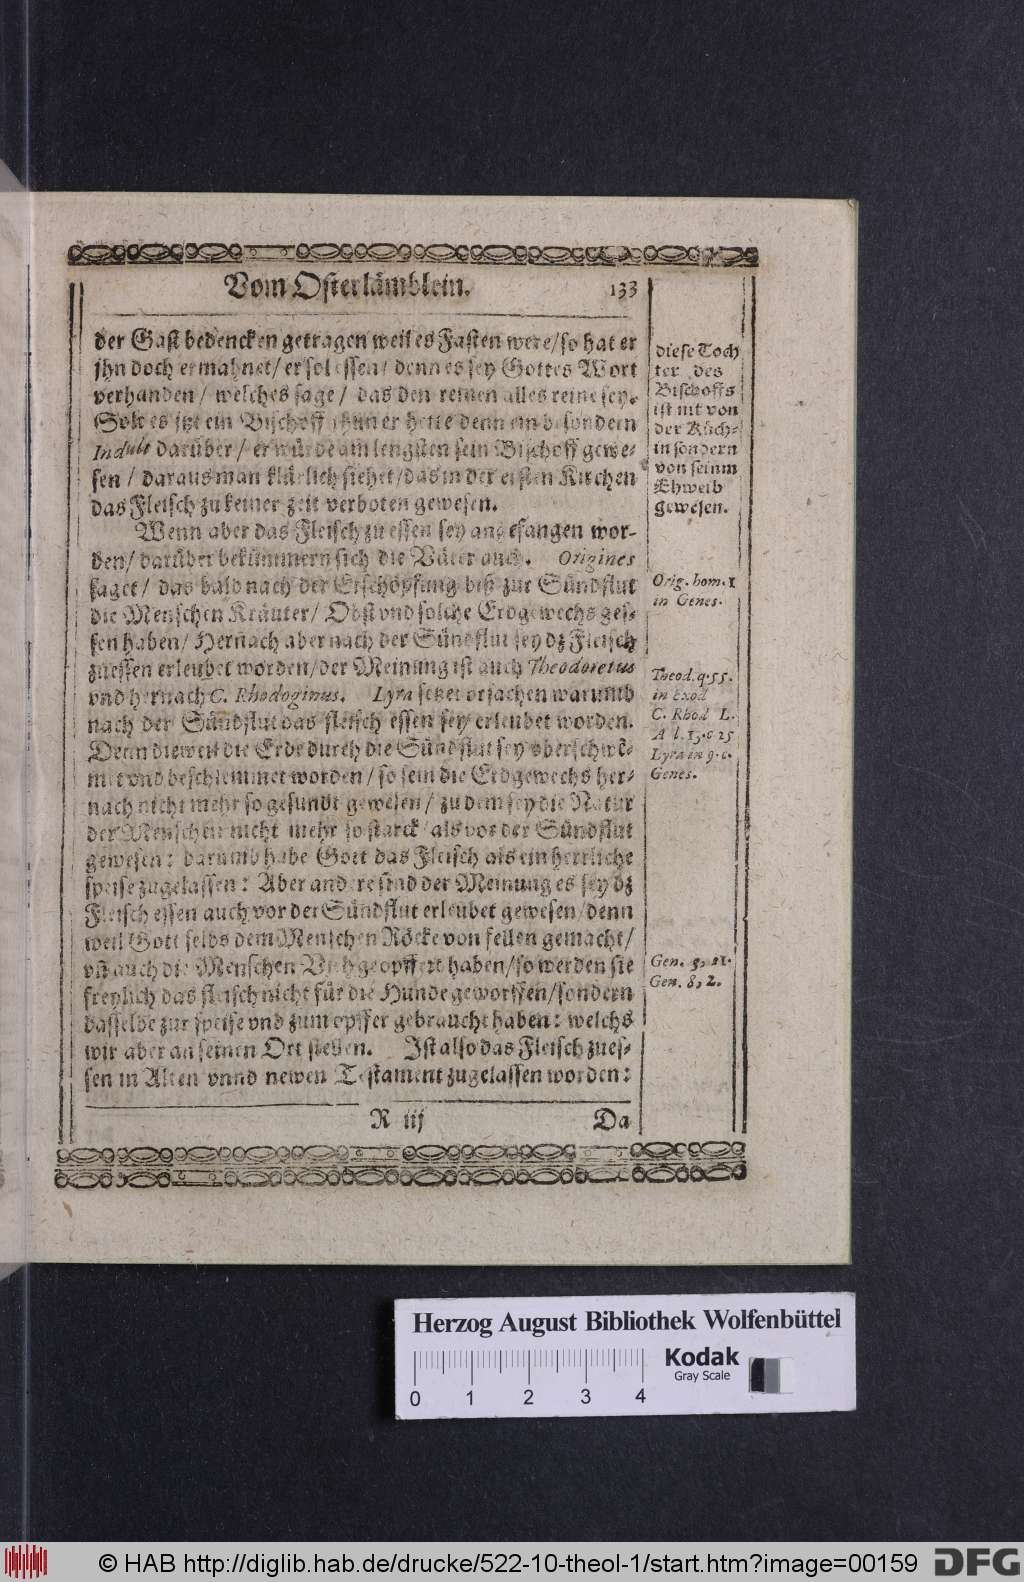 Vom Osterlämblein. 133
der Gast bedencken getragen weil es Fasten were/ so hat er
jhn doch ermahnet/ er sol essen/ denn es sey Gottes Wort
verhanden/ welches sage/ das den reinen alles reine sey.
Solt es jtzt ein Bischoff thun er hette denn ein besondern
Indult darüber/ er würde am lengsten sein Bischoff gewe-
sen/ daraus man klärlich siehet/ das in der ersten Kirchen
das Fleisch zu keiner zeit verboten gewesen.
Wenn aber das Fleisch zu essen sey angefangen wor-
den/ darüber bekümmern sich die Väter auch. Origines
saget/ das bald nach der Erschöpfung biß zur Sündflut
die Menschen Kräuter/ Obst vnd solche Erdgewechs ges-
sen haben/ Hernach aber nach der Sündflut sey dz Fleisch
zu essen erleubet worden/ der Meinung ist auch Theodoretus
vnd hernach C. Rhodoginus. Lyra setzet vrsachen warumb
nach der Sündflut das fleisch essen sey erleubet worden.
Denn dieweil die Erde durch die Sündflut sey vberschwē-
met vnd beschlemmet worden/ so sein die Erdgewechs her-
nach nicht mehr so gesundt gewesen/ zu dem sey die Natur
der Menschen nicht mehr so starck als vor der Sündflut
gewesen: darumb habe Gott das Fleisch als ein herrliche
speise zugelassen: Aber andere sind der Meinung es sey dz
Fleisch essen auch vor der Sündflut erleubet gewesen/ denn
weil Gott selbs dem Menschen Röcke von fellen gemacht/
vñ auch die Menschen Vieh geopffert haben/ so werden sie
freylich das fleisch nicht für die Hunde geworffen/ sondern
dasselbe zur speise vnd zum opffer gebraucht haben: welchs
wir aber an seinen Ort stellen. Ist also das Fleisch zu es-
sen in Alten vnnd newen Testament zugelassen worden:
R iij Da
diese Toch
ter des
Bischoffs
ist nit von
der Köch-
in sondern
von seinm
Ehweib
gewesen.
Orig. hom. 1
in Genes.
Theod. q. 55.
in Exod
C. Rhod L.
A l. 13. c 25
Lyra in 9. c.
Genes.
Gen. 3, 21.
Gen. 8, 2.
Herzog August Bibliothek Wolfenbüttel
Kodak
Gray Scale
0 1 2 3 4
© HAB http://diglib.hab.de/drucke/522-10-theol-1/start.htm?image=00159
DFG